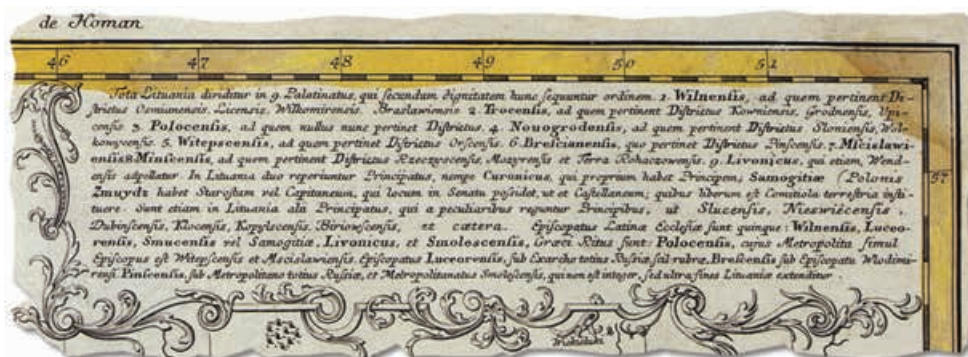 de Homan
46 47 48 49 50 51
Tota Lituania dividitur in 9. Palatinatus, qui secundum dignitatem hunc sequuntur ordinem. 1. Wilnensis, ad quem pertinent Di-
strictus Osmianensis. Licensis, Wilkomirensis. Braslawiensis 2. Trocensis, ad quem pertinent Districtus Kowniensis, Grodnensis, Upi-
censis 3. Polocensis, ad quem nullus nunc pertinet Districtus. 4. Nouogrodensis, ad quem pertinent Districtus Slonimensis, Wol-
kowycensis. 5. Witepscensis, ad quem pertinet Districtus Orscensis. 6. Brescianensis, quo pertinet Districtus Pinscensis. 7. Micislawi-
ensis 8 Minscensis, ad quem pertinent Districtus Rzeczycensis, Mozyrensis et Terra Rohaczowensis. 9. Livonicus, qui etiam, Wend-
ensis adpellatur. In Lituania duo reperiuntur Principatus, nempe Curonicus, qui proprium habet Principem; Samogitiæ (Polonis
Zmuydz habet Starostam vel Capitaneum, qui locum in Senatu possidet, ut et Castellaneum; quibus liberum est Comitiola terrestria insti-
tuere. Sunt etiam in Lituania alii Principatus, qui a peculiaribus reguntur Principibus, ut Slucensis, Nieswiécensis,
Dubinscensis, Klocensis, Kopylscensis. Biriowscensis, et cætera. Episcopatus Latinæ Ecclesiæ sunt quinque: Wilnensis, Luceo-
rensis, Smucensis vel Samogitiæ, Livonicus, et Smolescensis, Græci Ritus sunt: Polocensis, cujus Metropolita simul
Episcopus est Witepscensis et Mscislawiensis. Episcopatus Luceorensis, sub Exarcho totius Russiæ, sed rubræ, Brescensis sub Episcopatu Wlodimi-
rensi Pinscensis, sub Metropolitano totius Russiæ, et Metropolitanatus Smolescensis, qui non est integer, sed ultra fines Lituaniæ extenditur.
57